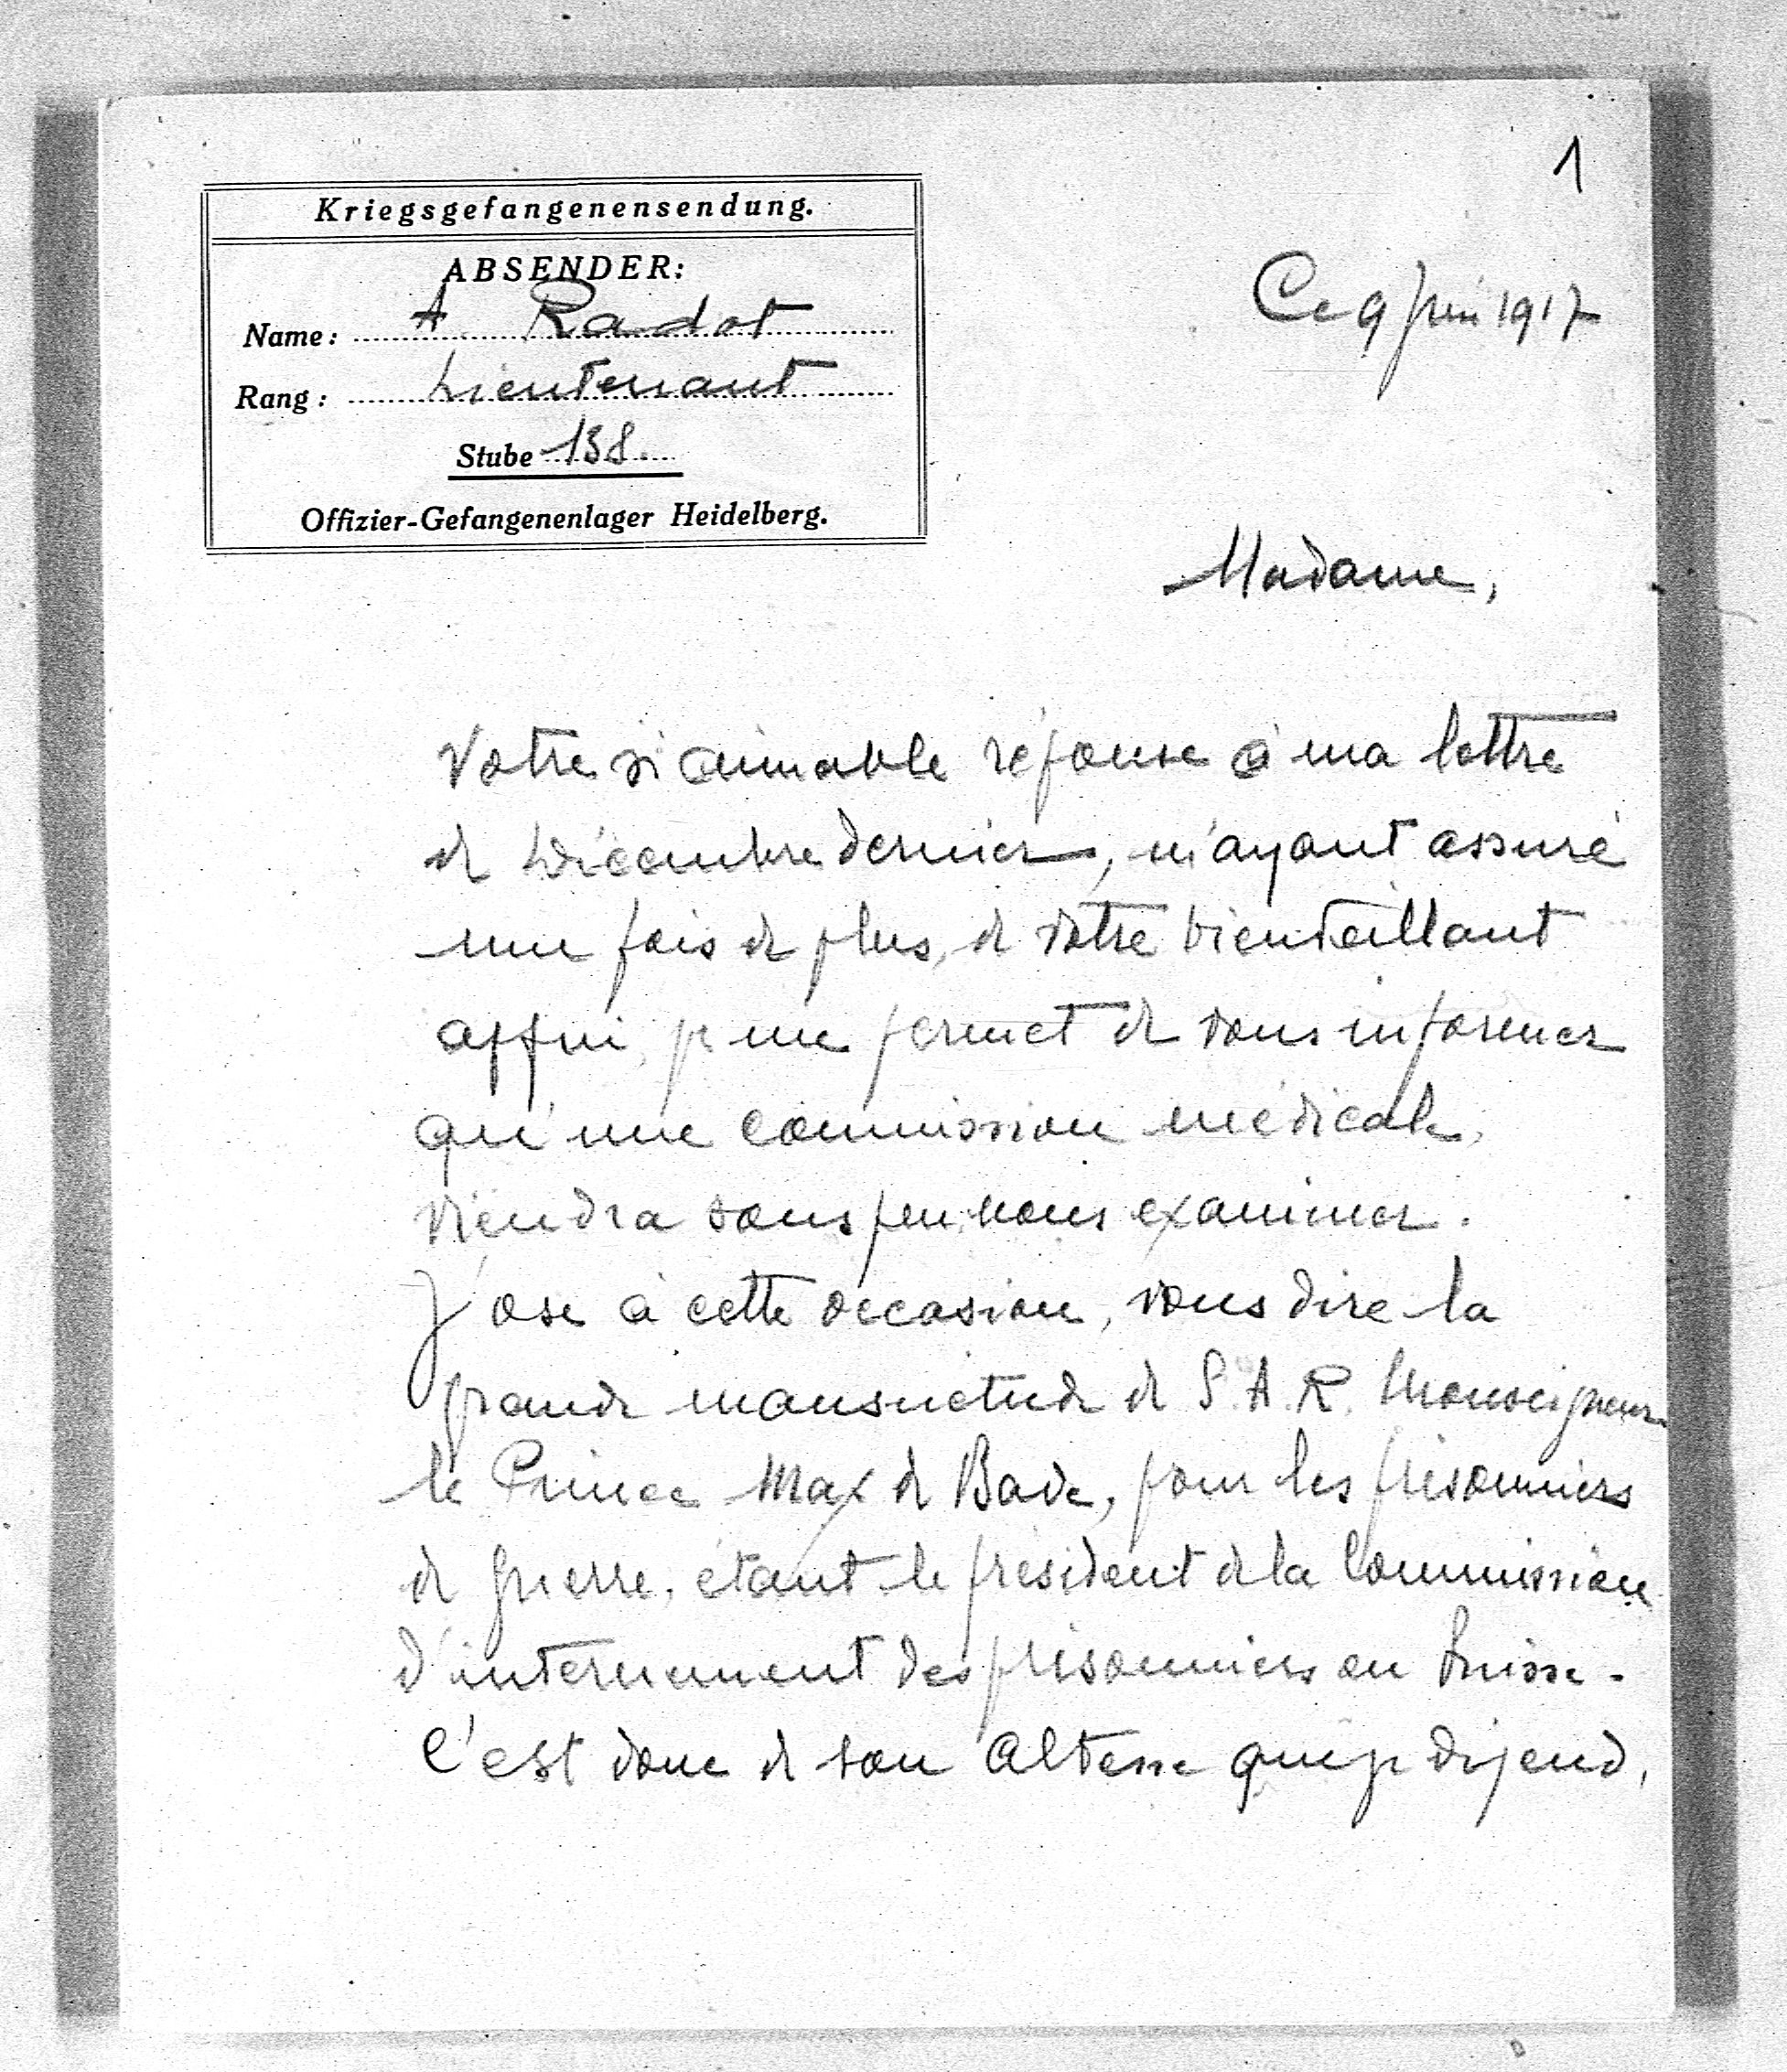 1
Kriegsgefangenensendung.
ABSENDER:
Name: A. Radot
Rang: Lieutenant
Stube 138.
Offizier-Gefangenenlager Heidelberg.
Ce 9 juin 1917
Madame,
Votre si aimable réponse à ma lettre
de Décembre dernier, m'ayant assuré
une fois de plus, de votre bienveillant
appui, je me permet de vous informer
qu'une commission médicale,
viendra sous peu, nous examiner.
J'ose à cette occasion, vous dire la
grande mansuetude de S.A.R. Monseigneur
le Prince Max de Bade, pour les prisonniers
de guerre, étant le président de la Commission
d'internement des prisonniers en Suisse.
C'est donc de son Altesse que je dépend,